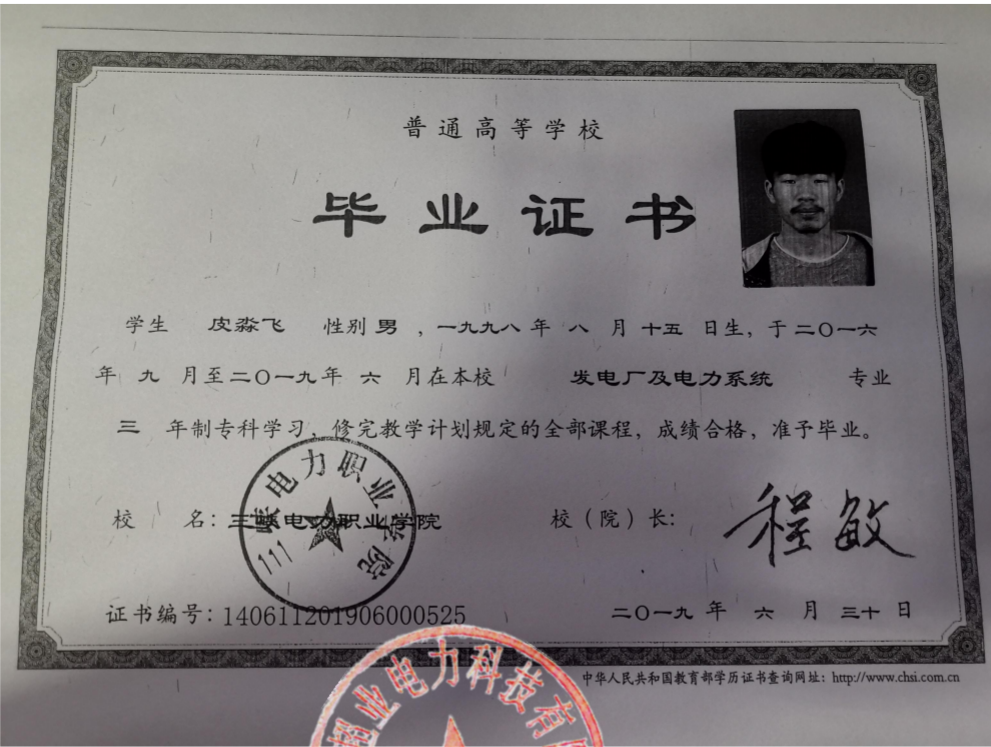 普通高等学校
毕业证书
学生 皮淼飞 性别 男 ，一九九八 年 八 月 十五 日生，于 二〇一六
年 九 月至 二〇一九 年 六 月在本校 发电厂及电力系统 专业
三 年制专科学习，修完教学计划规定的全部课程，成绩合格，准予毕业。
校 名：三峡电力职业学院
校（院）长：程敏
三峡电力职业学院
证书编号：140611201906000525
二〇一九 年 六 月 三十 日
中华人民共和国教育部学历证书查询网址：http://www.chsi.com.cn
超业电力科技有限